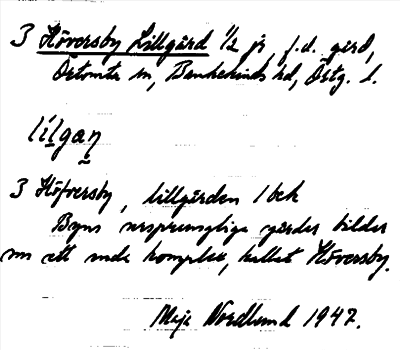 3 Höversby Lillgård 1/2 jr, f.d. gård,
Örtomta sn, Bankekinds hd, Östg. l.
lilgaṇ
3 Höfversby, lillgården 1 bek
Byns ursprungliga gårdar bildar
nu ett enda komplex, kallat Höversby.
Maja Nordlund 1947.